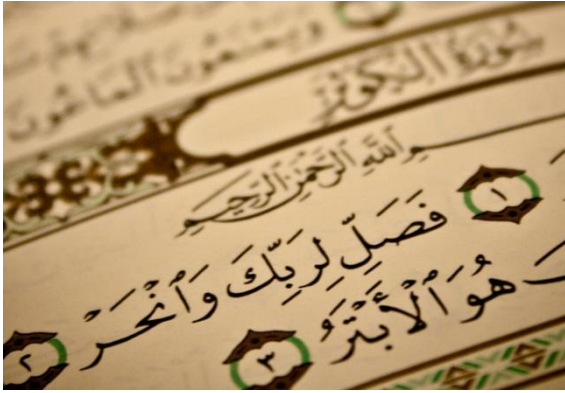 ويمنعون الماعون
سورة الكوثر
بسم الله الرحمن الرحيم
١ فَصَلِّ لِرَبِّكَ وَٱنْحَرْ ٢
هُوَ ٱلْأَبْتَرُ ٣